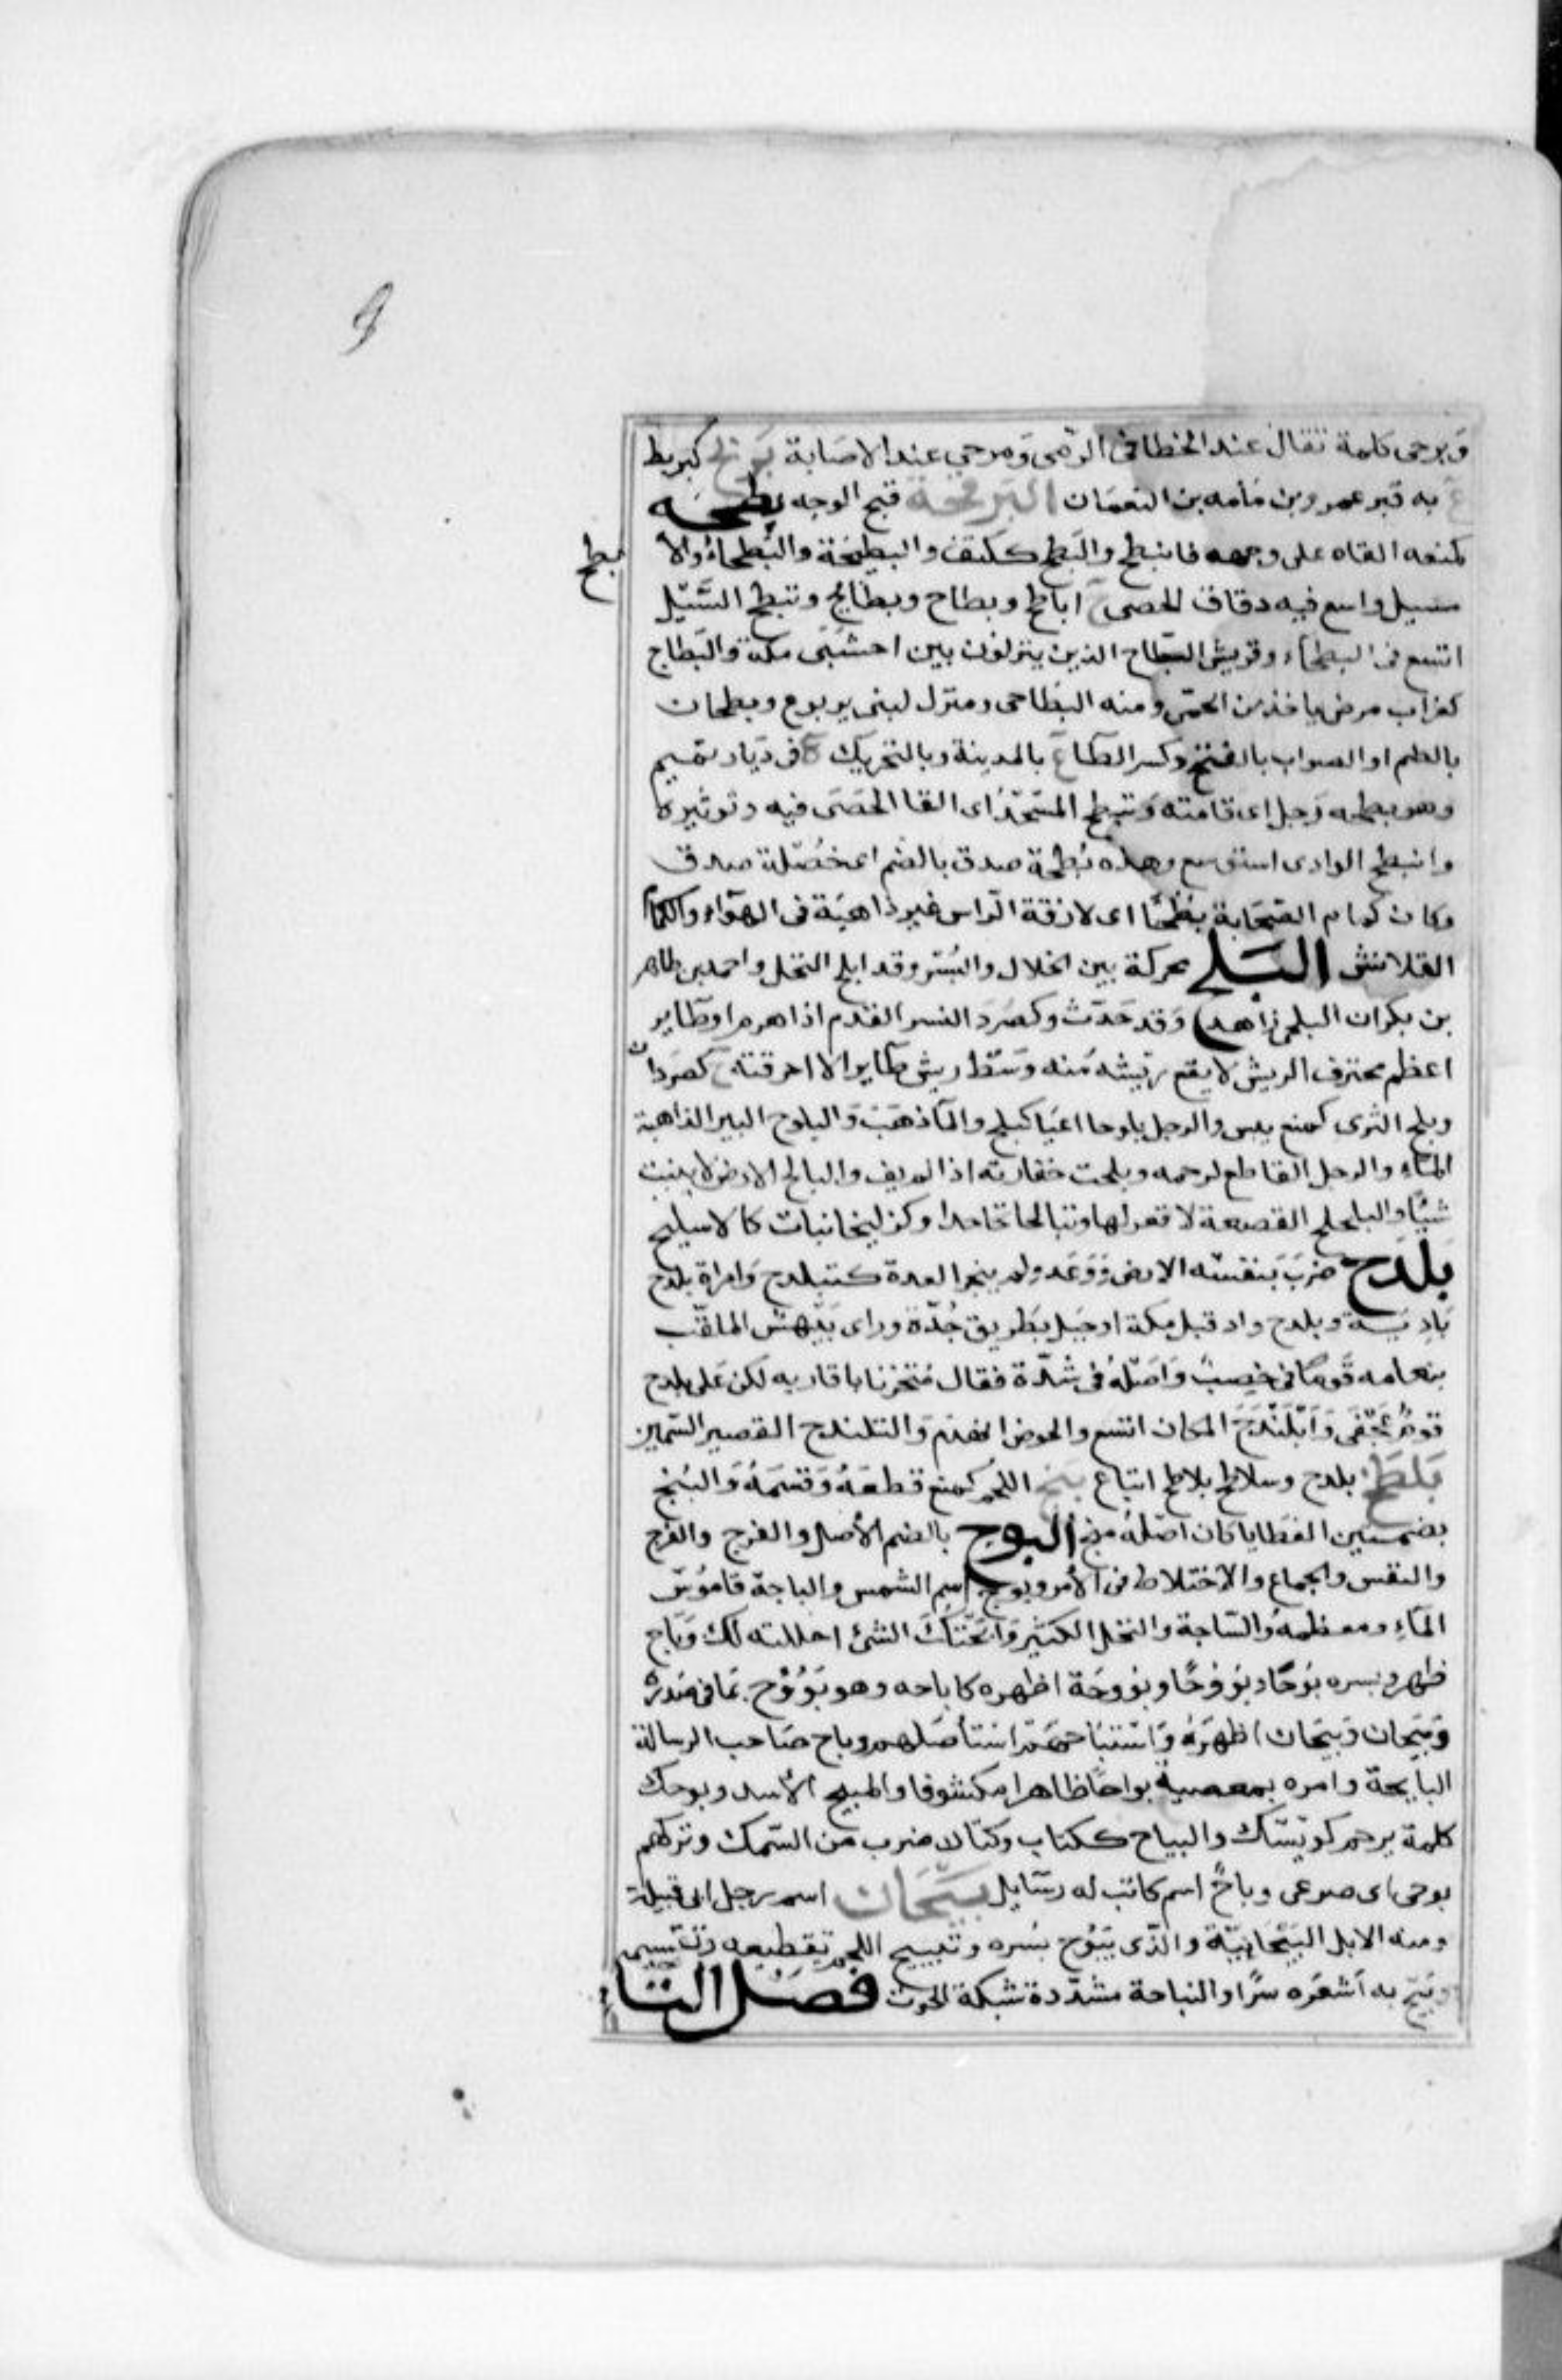 وبرحى كلمة تقال عند الخطا فى الرمى ومرحى عند الاصابة برتح كبربط
ع به قبر عمرو بن مامه بن النعمان البرقحة قبح الوجه بطحه
كمنعه القاه على وجهه فانبطح والبطح ككتف والبطيحة والبطحاء والا
بطح
مسيل واسع فيه دقاق الحصى ج اباطح وبطاح وبطائح وتبطح السيل
اتسع فى البطحاء وقريش البطاح الذين ينزلون بين اخشبى مكة والبطاح
كغراب مرض ياخذ من الحمى ومنه البطاحى ومنزل لبنى يربوع وبطحان
بالضم او الصواب بالفتح وكسر الطا ع بالمدينة وبالتحريك ع فى ديار تميم
وهو بطحه رجل اى قامته وتبطح المسجد اى القا الحصى فيه وتوثيره
وانبطح الوادى استوسع وهذه بطحة صدق بالضم اى خصلة صدق
وكان كمام الصحابة بطحا اى لازقة الراس غير ذاهبة فى الهواء والكمام
القلانس البلح محركة بين الخلال والبسر وقد ابلح النخل واحمد بن طاهر
بن بكران البلحى زاهد وقد حدث وكصرد النسر القدم اذا هرم او طاير
اعظم محترق الريش لا يقع ريشه منه وسط ريش طاير الا احرقته ج كصردان
وبلح الثرى كمنع يبس والرجل بلوحا اعيا كبلح والما ذهب والبلوح البير الذاهبة
الماء والرجل القاطع لرحمه وبلحت خفارته اذا لم يف والبالح الارض لا ينبت
شيئا والبلحلح القصعة لا قعر لها وتبالحا تجاحدا وكزليخا نبات كالاسليح
بلدح ضرب بنفسه الارض ووعد ولم ينجز العدة كتبلدح وامراة بلدح
بادنية وبلدح واد قبل مكة او جبل بطريق جدة وراى بيهس الملقب
بنعامه قوما فى خصب واهله فى شدة فقال متحزنا باقاربه لكن على بلدح
قوم عجفى وابلندح المكان اتسع والحوض انهدم والبلندح القصير السمين
بلطح بلدح وسلاطح بلاطح اتباع بنح اللحم كمنع قطعه وقسمه والبنح
بضمتين العطايا كان اصله منح البوح بالضم الاصل والفرج والفرج
والنفس والجماع والاختلاط فى الامر وبوح اسم الشمس والباحة قاموس
الماء ومعظمه والساحة والنخل الكثير وابحتك الشئ احللته لك وباح
ظهر وبسره بوحا وبؤوحا وبؤوحة اظهره كاباحه وهو بؤوح بما فى صدره
وبيحان وبيحان اظهره واستباحهم استأصلهم وباح صاحب الرسالة
البايحة وامره بمعصية بواحا ظاهرا مكشوفا والمبيح الاسد وبوحك
كلمة ترحم كويسك والبياح ككتاب وكتان ضرب من السمك وتركهم
بوحى اى صرعى وباح اسم كاتب له رسايل بيحان اسم رجل ابى قبيلة
ومنه الابل البيحانية والذى يبوح بسره وتبييح اللحم تقطيعه وتقسيمه
وبيح به اشعره سرا والبياحة مشددة شبكة الحوت فصل التاء